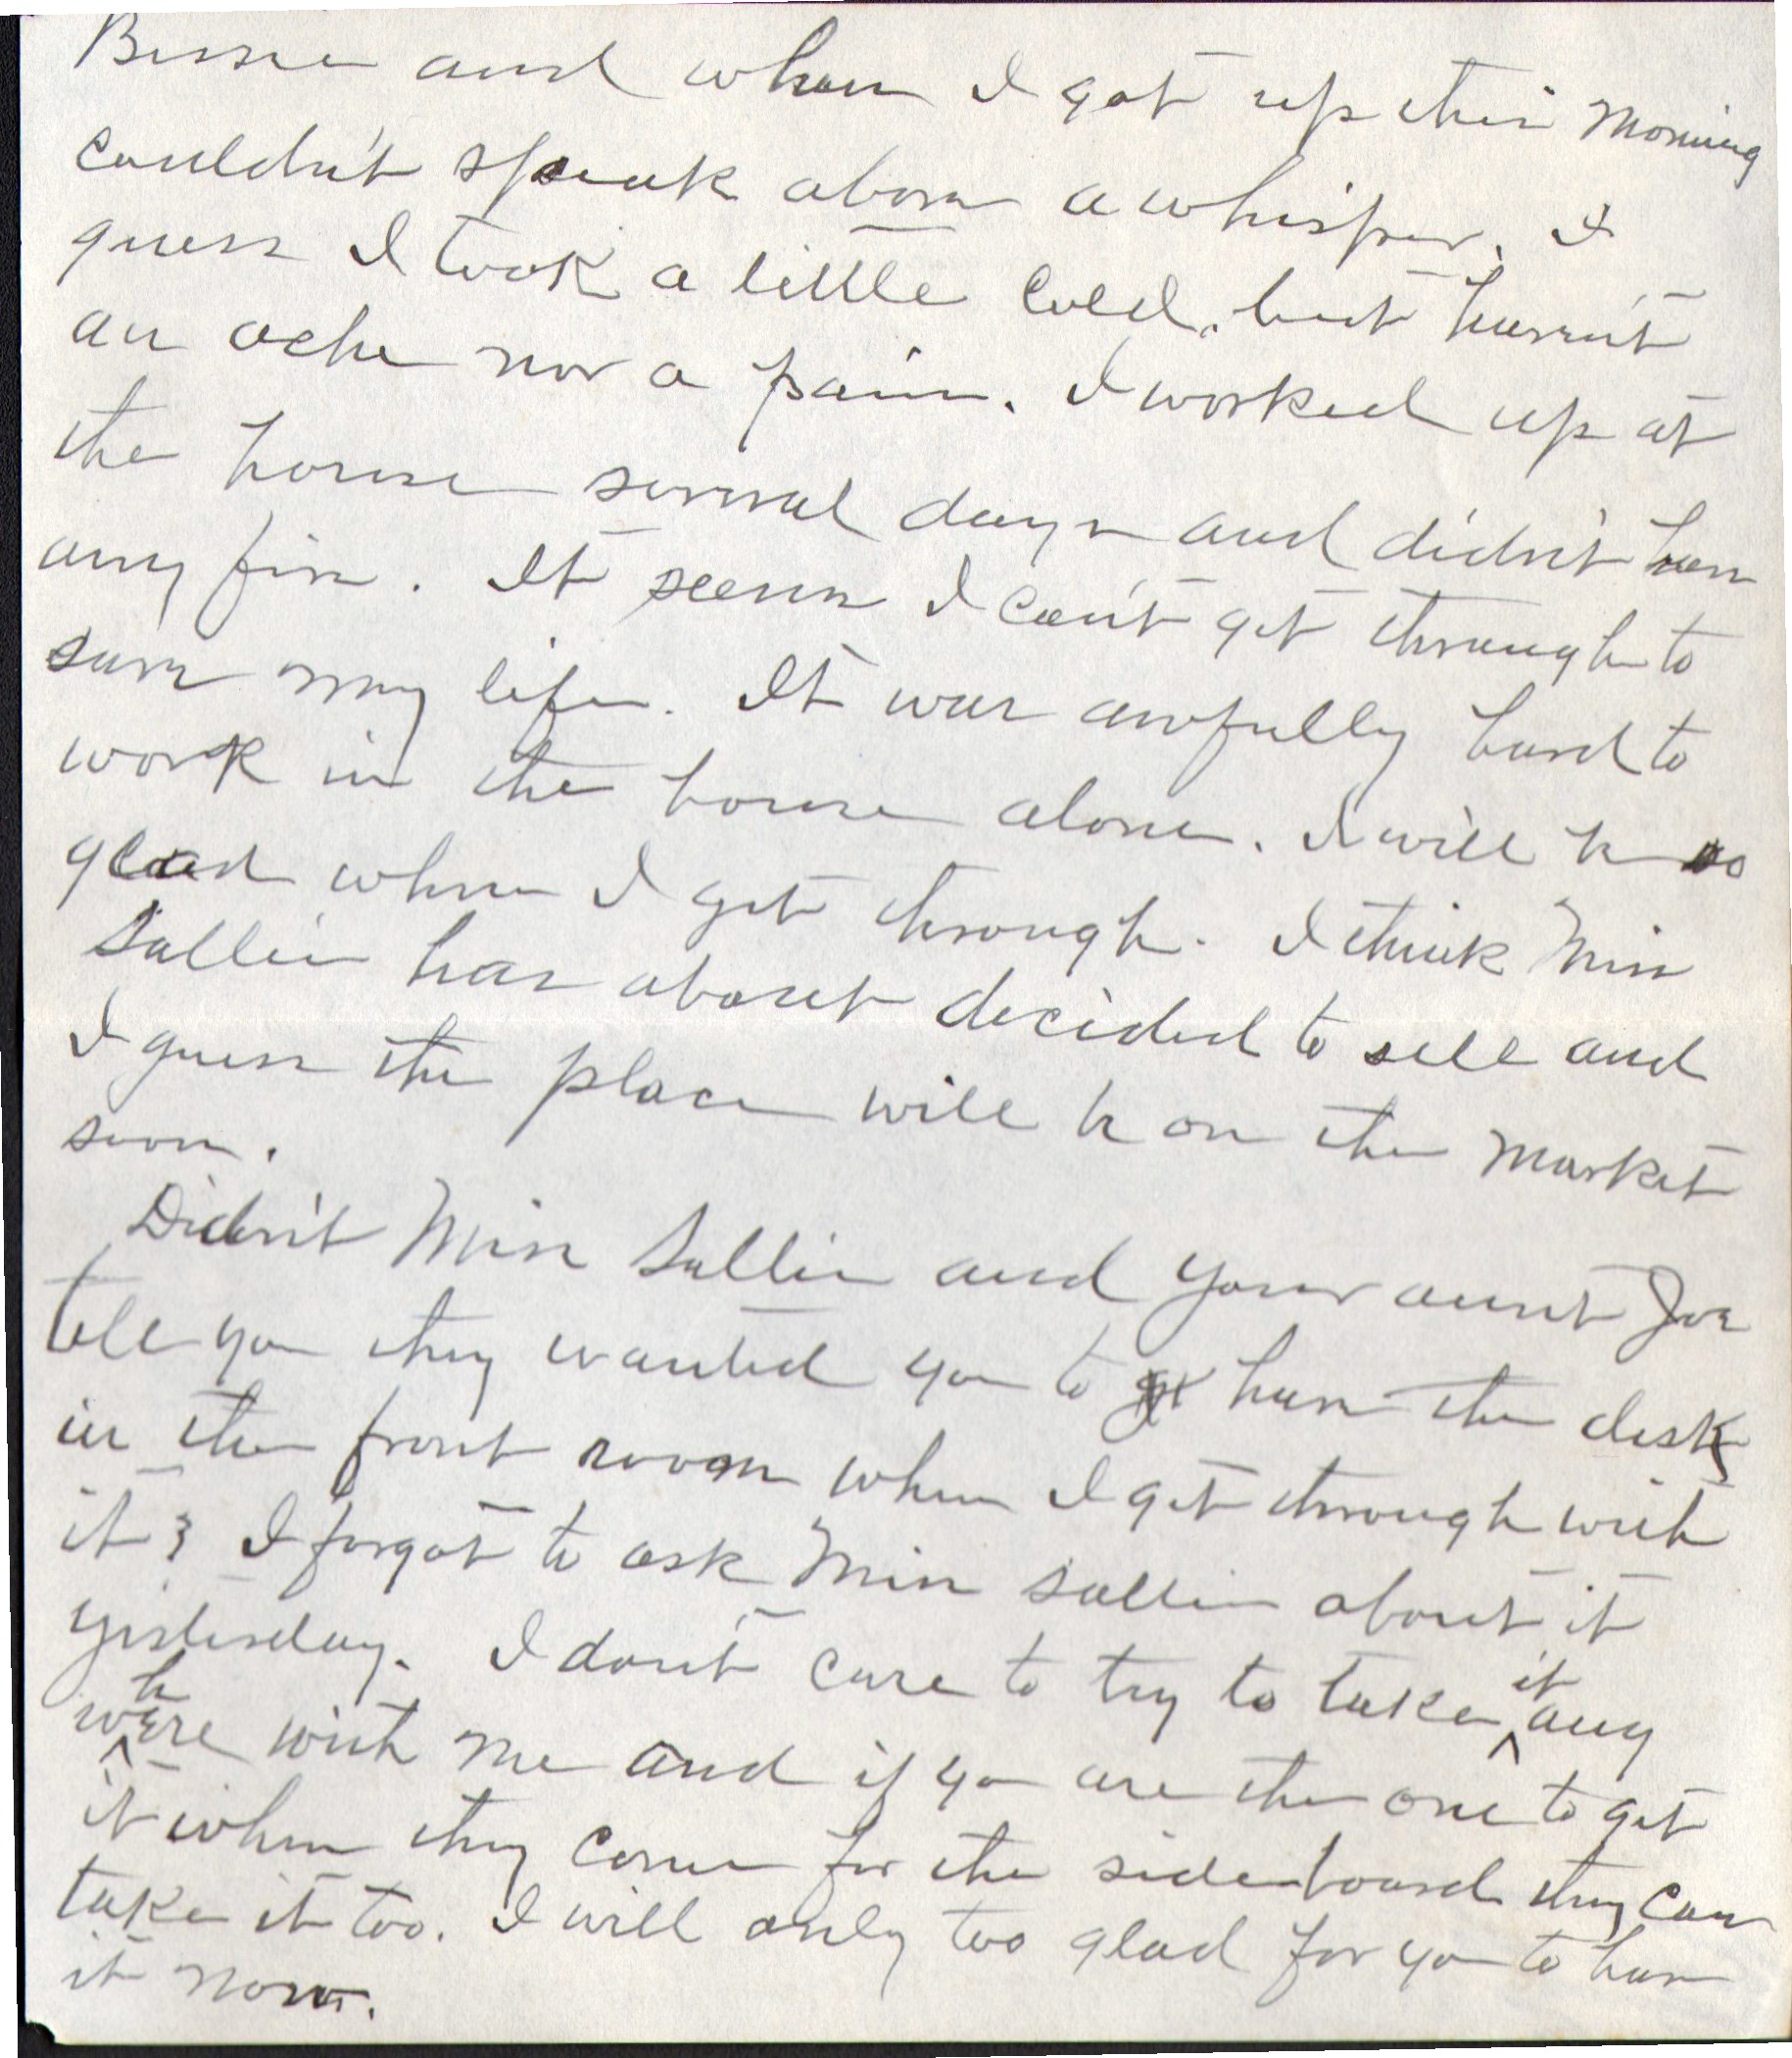 Bessie and when I got up this morning
couldn't speak above a whisper. I
guess I took a little cold, but haven't
an ache nor a pain. I worked up at
the house several days and didn't have
any fire. It seems I can't get through to
save my life. It was awfully hard to
work in the house alone. I will be so
glad when I get through. I think Miss
Sallie has about decided to sell and
I guess the place will be on the market
soon.
Didn't Miss Sallie and your aunt Joe
tell you they wanted you to have the desk
in the front room when I get through with
it? I forgot to ask Miss Sallie about it
yesterday. I don't care to try to take it any
where with me and if you are the one to get
it when they come for the sideboard they can
take it too. I will only too glad for you to have
it now.